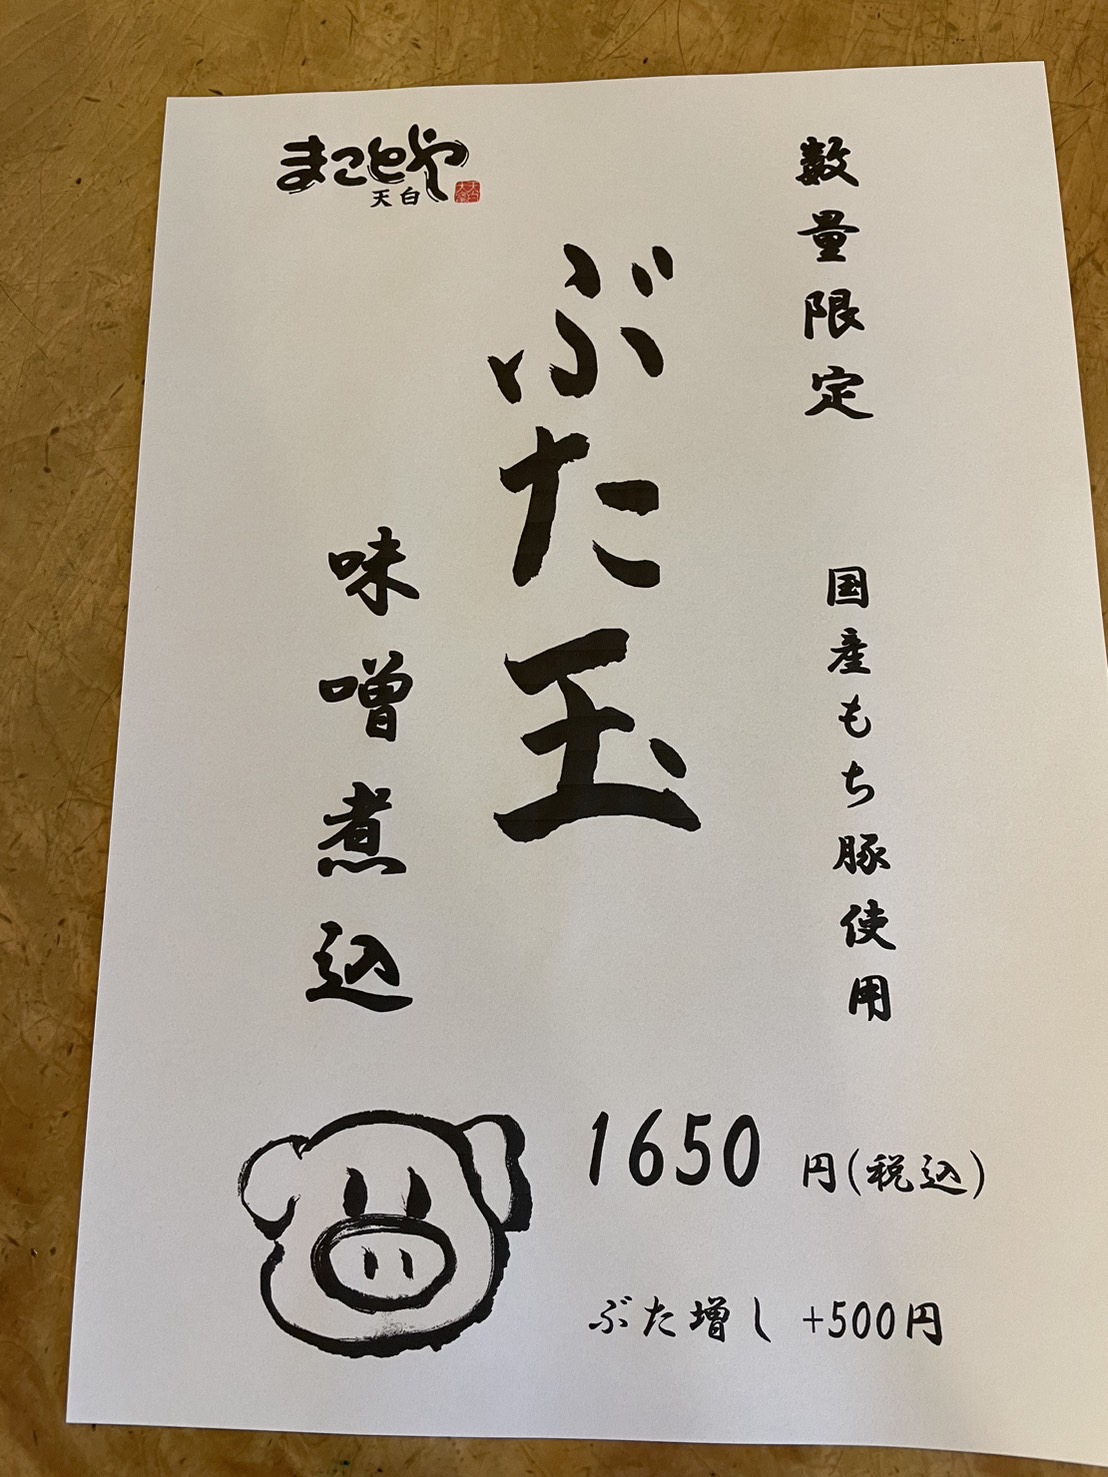 まことや
天白
数量限定
国産もち豚使用
ぶた玉
味噌煮込
1650 円(税込)
ぶた増し +500円